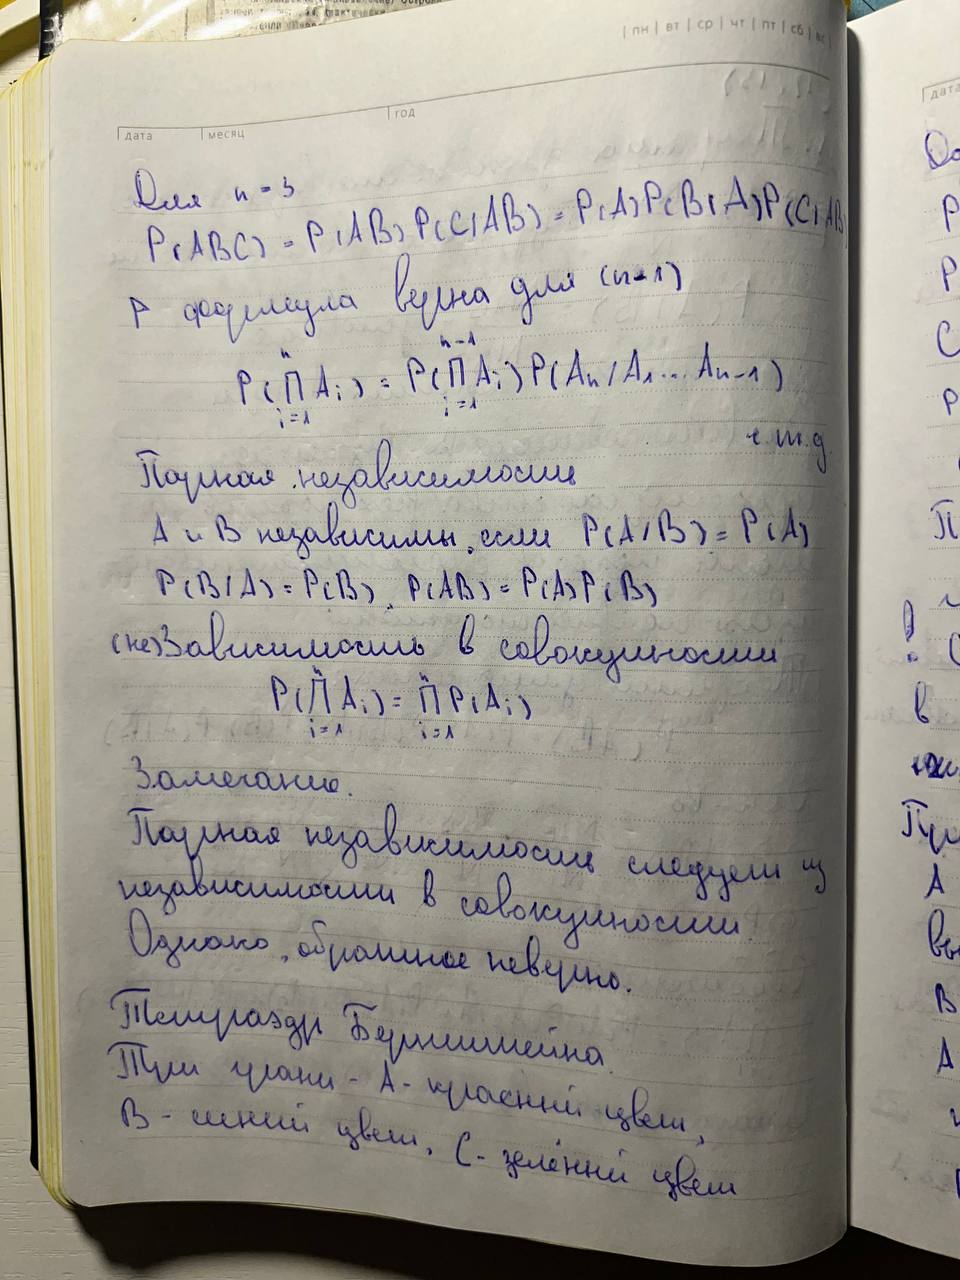 пн вт ср чт пт сб вс
год
дата месяц
Для n = 3
P(ABC) = P(AB) P(C/AB) = P(A)P(B/A)P(C/AB)
P формула верна для (n-1)
P(∏ᵢ₌₁ⁿ Aᵢ) = P(∏ᵢ₌₁ⁿ⁻¹ Aᵢ) P(Aₙ/A₁...Aₙ₋₁)
ч.т.д.
Парная независимость
A и B независимы, если P(A/B) = P(A)
P(B/A) = P(B), P(AB) = P(A)P(B)
(не)Зависимость в совокупности
P(∏ᵢ₌₁ⁿ Aᵢ) = ∏ᵢ₌₁ⁿ P(Aᵢ)
Замечание.
Парная независимость следует из
независимости в совокупности.
Однако, обратное неверно.
Тетраэдр Бернштейна
Три грани - A - красный цвет,
B - синий цвет, C - зелёный цвет
дата